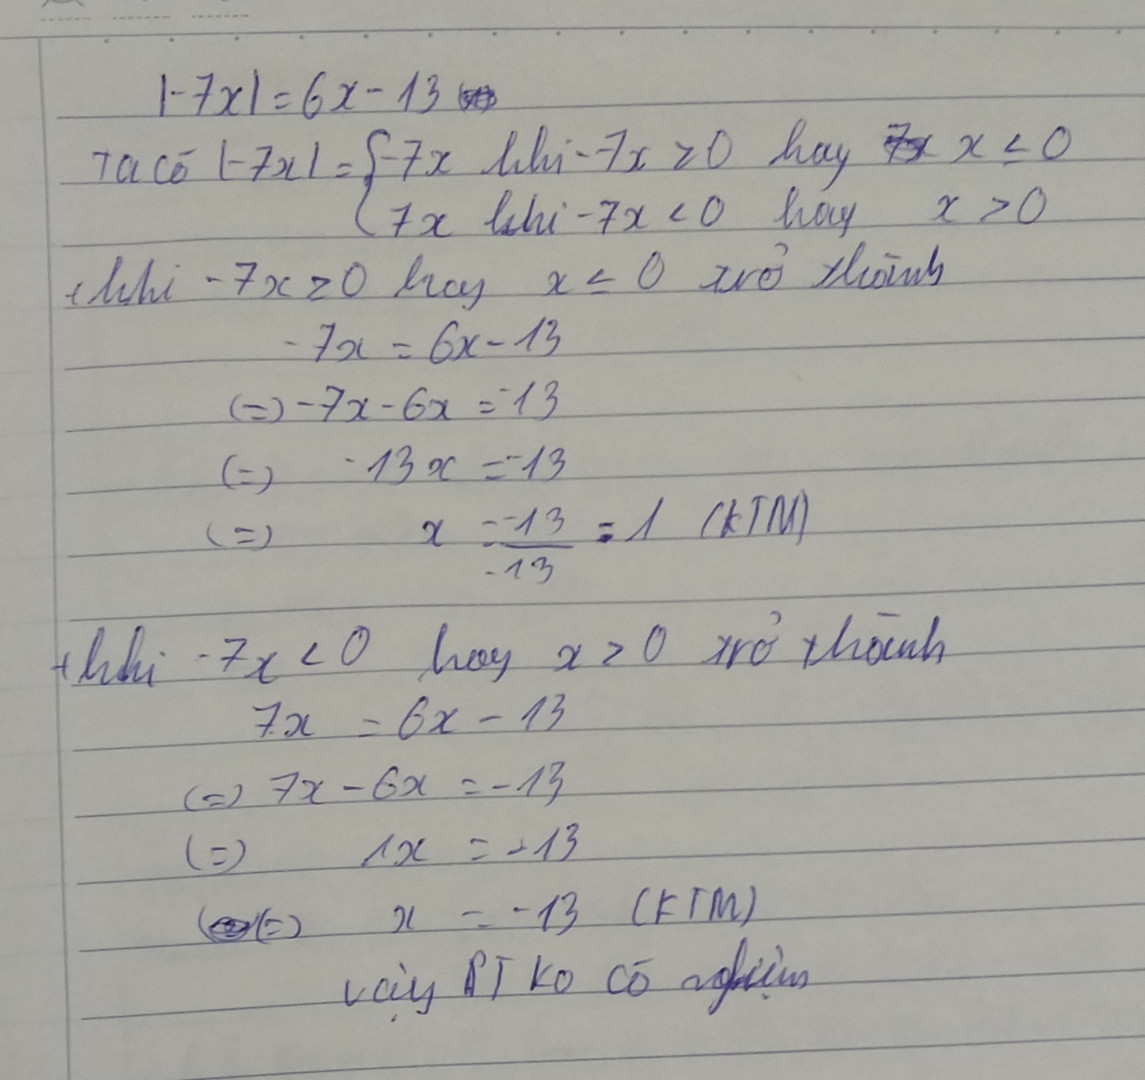 |-7x| = 6x - 13
Ta có |-7x| = { -7x khi -7x ≥ 0 hay x ≤ 0
7x khi -7x < 0 hay x > 0
+ khi -7x ≥ 0 hay x ≤ 0 trở thành
-7x = 6x - 13
(=) -7x - 6x = -13
(=) -13x = -13
(=) x = -13/-13 = 1 (KTM)
+ khi -7x < 0 hay x > 0 trở thành
7x = 6x - 13
(=) 7x - 6x = -13
(=) 1x = -13
(=) x = -13 (KTM)
vậy PT ko có nghiệm